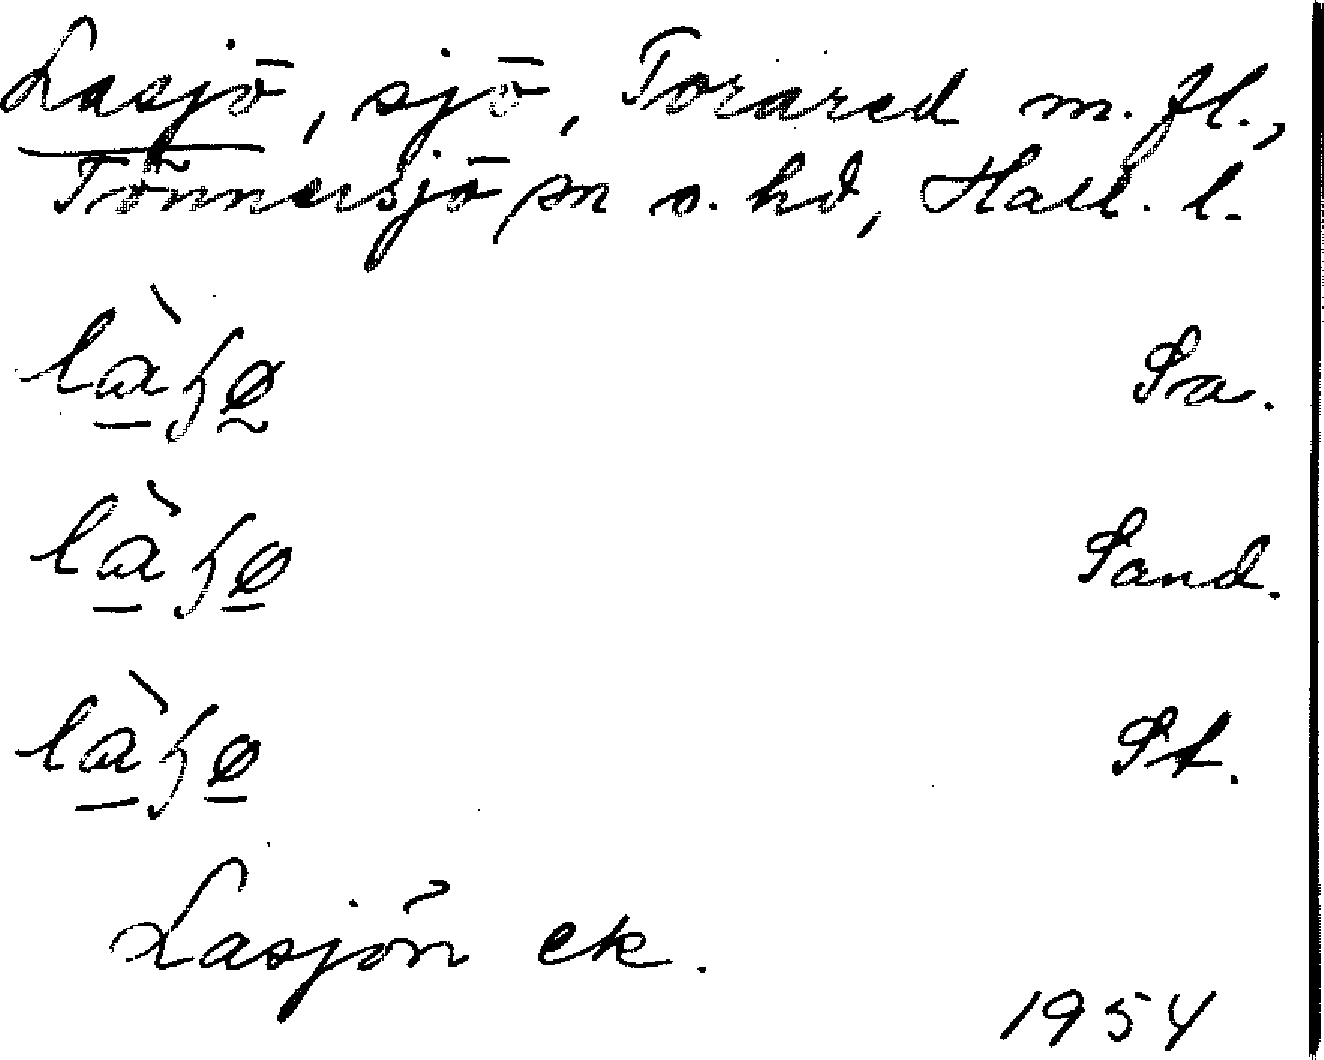 Lasjö, sjö, Torared m. fl.,
Tönnersjö sn o. hd, Hall. l.
là̱ɧø̰ Sra.
là̱ɧø̱ Sand.
là̱ɧø̱ St.
Lasjön ek.
1954